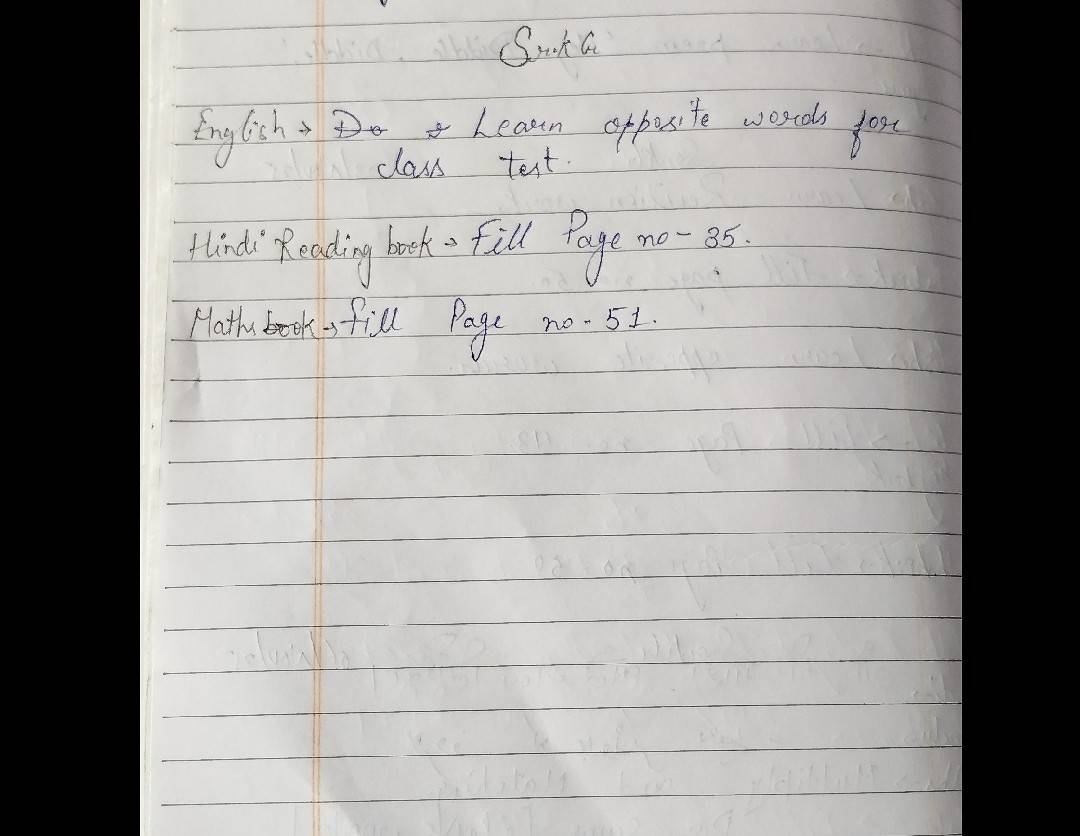 English → Do & Learn opposite words for
class test.
Hindi Reading book → Fill Page no - 35.
Maths book → fill Page no - 51.